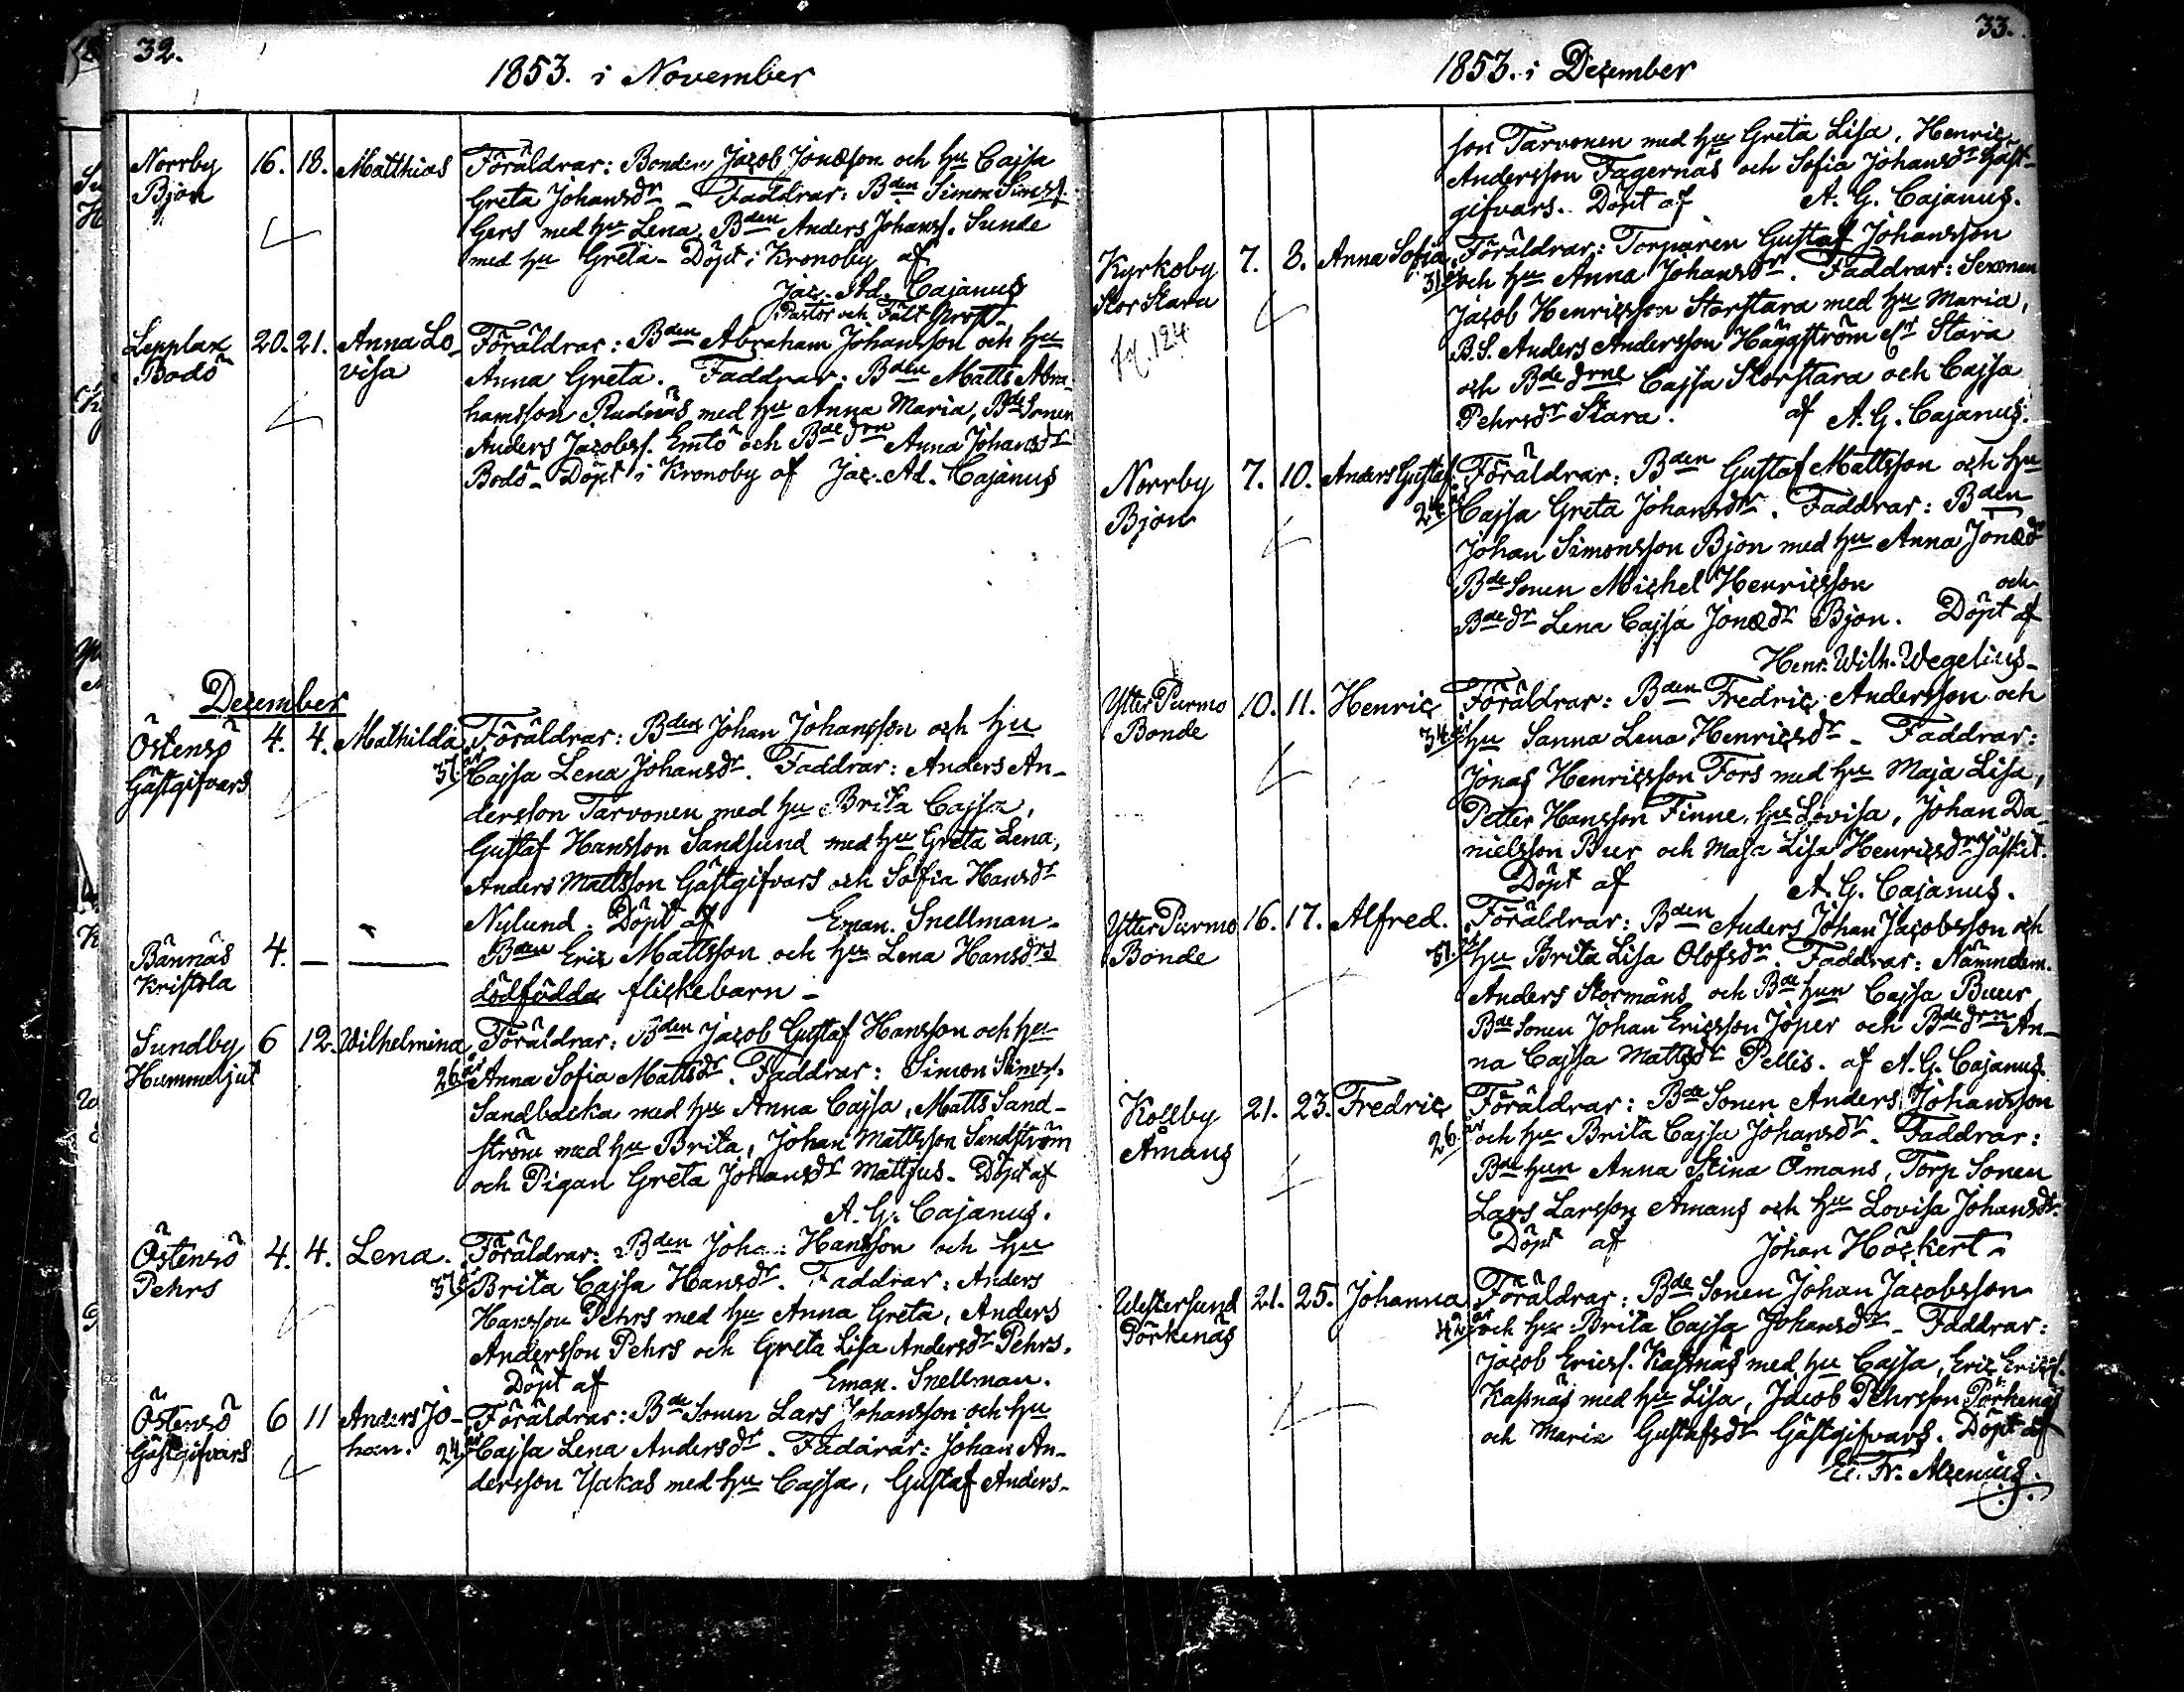 32.
1853. i November
Norrby 16. 18. Matthias Föräldrar: Bonden Jacob Jonæson och hu Cajsa
Bjon Greta Johansdr - Faddrar: Bden Simon Simss.
Gers med hu Lena, Bden Anders Johanss. Sunde
med hu Greta - Döpt i Kronoby af
Jac. Ad. Cajanus
Pastor och Fält Prost.
Lepplax 20. 21. Anna Lo- Föräldrar: Bden Abraham Johansson och hu
Bodö visa Anna Greta. Faddrar: Bden Matts Abra-
hamsson Rudnäs med hu Anna Maria, Bde Sonen
Anders Jacobss. Emtö och Bde drn Anna Johansdr
Bodö - Döpt i Kronoby af Jac. Ad. Cajanus
December
Östensö 4. 4. Mathilda Föräldrar: Bden Johan Johansson och hu
Gästgifvars 37. år Cajsa Lena Johansdr. Faddrar: Anders An-
dersson Tarvonen med hu Brita Cajsa,
Gustaf Hansson Sandsund med hu Greta Lena,
Anders Mattsson Gästgifvars och Sofia Hansdr
Nylund. Döpt af Eman. Snellman-
Bännäs 4. — — Bden Eric Mattsson och hu Lena Hansdrs
Kristola dödfödda flickebarn -
Sundby 6 12. Wilhelmina Föräldrar: Bden Jacob Gustaf Hansson och hu
Hummeljut 26. år Anna Sofia Mattsdr. Faddrar: Simon Simss.
Sandbacka med hu Anna Cajsa, Matts Sand-
ström med hu Brita, Johan Mattsson Sandström
och Pigan Greta Johansdr Mattjus - Döpt af
A. G. Cajanus.
Östensö 4. 4. Lena. Föräldrar: Bden Joha: Hansson och hu
Pehrs 37. år Brita Cajsa Hansdr. Faddrar: Anders
Hansson Pehrs med hu Anna Greta, Anders
Andersson Pehrs och Greta Lisa Andersdr Pehrs.
Döpt af Eman. Snellman.
Östensö 6 11 Anders Jo- Föräldrar: Bde Sonen Lars Johansson och hu
Gästgifvars han. 24. år Cajsa Lena Andersdr. Faddrar: Johan An-
dersson Ysakas med hu Cajsa, Gustaf Anders-
33.
1853. i December
son Tarvonen med hu Greta Lisa, Henric
Andersson Fagernäs och Sofia Johansdr Gäst-
gifvars. Döpt af A. G. Cajanus.
Kyrkoby 7. 8. Anna Sofia Föräldrar: Torparen Gustaf Johansson
Stor Stara 31 år och hu Anna Johansdr. Faddrar: Sexman
124 Jacob Henricsson Storstara med hu Maria,
B.S. Anders Andersson Häggström Stara
och Bde drne Cajsa Storstara och Cajsa
Pehrsdr Stara. af A. G. Cajanus.
Norrby 7. 10. Anders Gustaf Föräldrar: Bden Gustaf Mattsson och hu
Bjon Cajsa Greta Johansdr. Faddrar: Bden
Johan Simonsson Bjon med hu Anna Jonædr
Bde Sonen Michel Henricsson och
Bde dr Lena Cajsa Jonædr Bjon. Döpt af
Henr. Wilh. Wegelius-
Ytter Purmo 10. 11. Henric Föräldrar: Bden Fredric Andersson och
Bonde 34. år hu Sanna Lena Henricsdr - Faddrar:
Jonas Henricsson Fors med hu Maja Lisa,
Petter Hansson Finne, hu Lovisa, Johan Da-
nielsson Buer och Maja Lisa Henricsdr
Döpt af A. G. Cajanus.
Ytter Purmo 16. 17. Alfred. Föräldrar: Bden Anders Johan Jacobsson och
Bonde 31. år hu Brita Lisa Olofsdr. Faddrar: Nämndem.
Anders Stormäns och Bde hun Cajsa Buur,
Bde Sonen Johan Ericsson Joper och Bde drn An-
na Cajsa Mattsdr Pellis. af A. G. Cajanus.
Kollby 21. 23. Fredric Föräldrar: Bde Sonen Anders Johansson
Åmans 26. år och hu Brita Cajsa Johansdr. Faddrar:
Bde hun Anna Stina Åmans, Torp Sonen
Lars Larsson Åmans och hu Lovisa Johansdr.
Döpt af Johan Höckert.
Westersund 21. 25. Johanna Föräldrar: Bde Sonen Johan Jacobsson
Pörkenäs 42. år och hu Brita Cajsa Johansdr - Faddrar:
Jacob Ericss. Kassnäs med hu Cajsa, Eric Ericss.
Kassnäs med hu Lisa, Jacob Pehrsson Pörkenäs
och Maria Gustafsdr Gästgifvars. Döpt af
Fr. Alcenius.